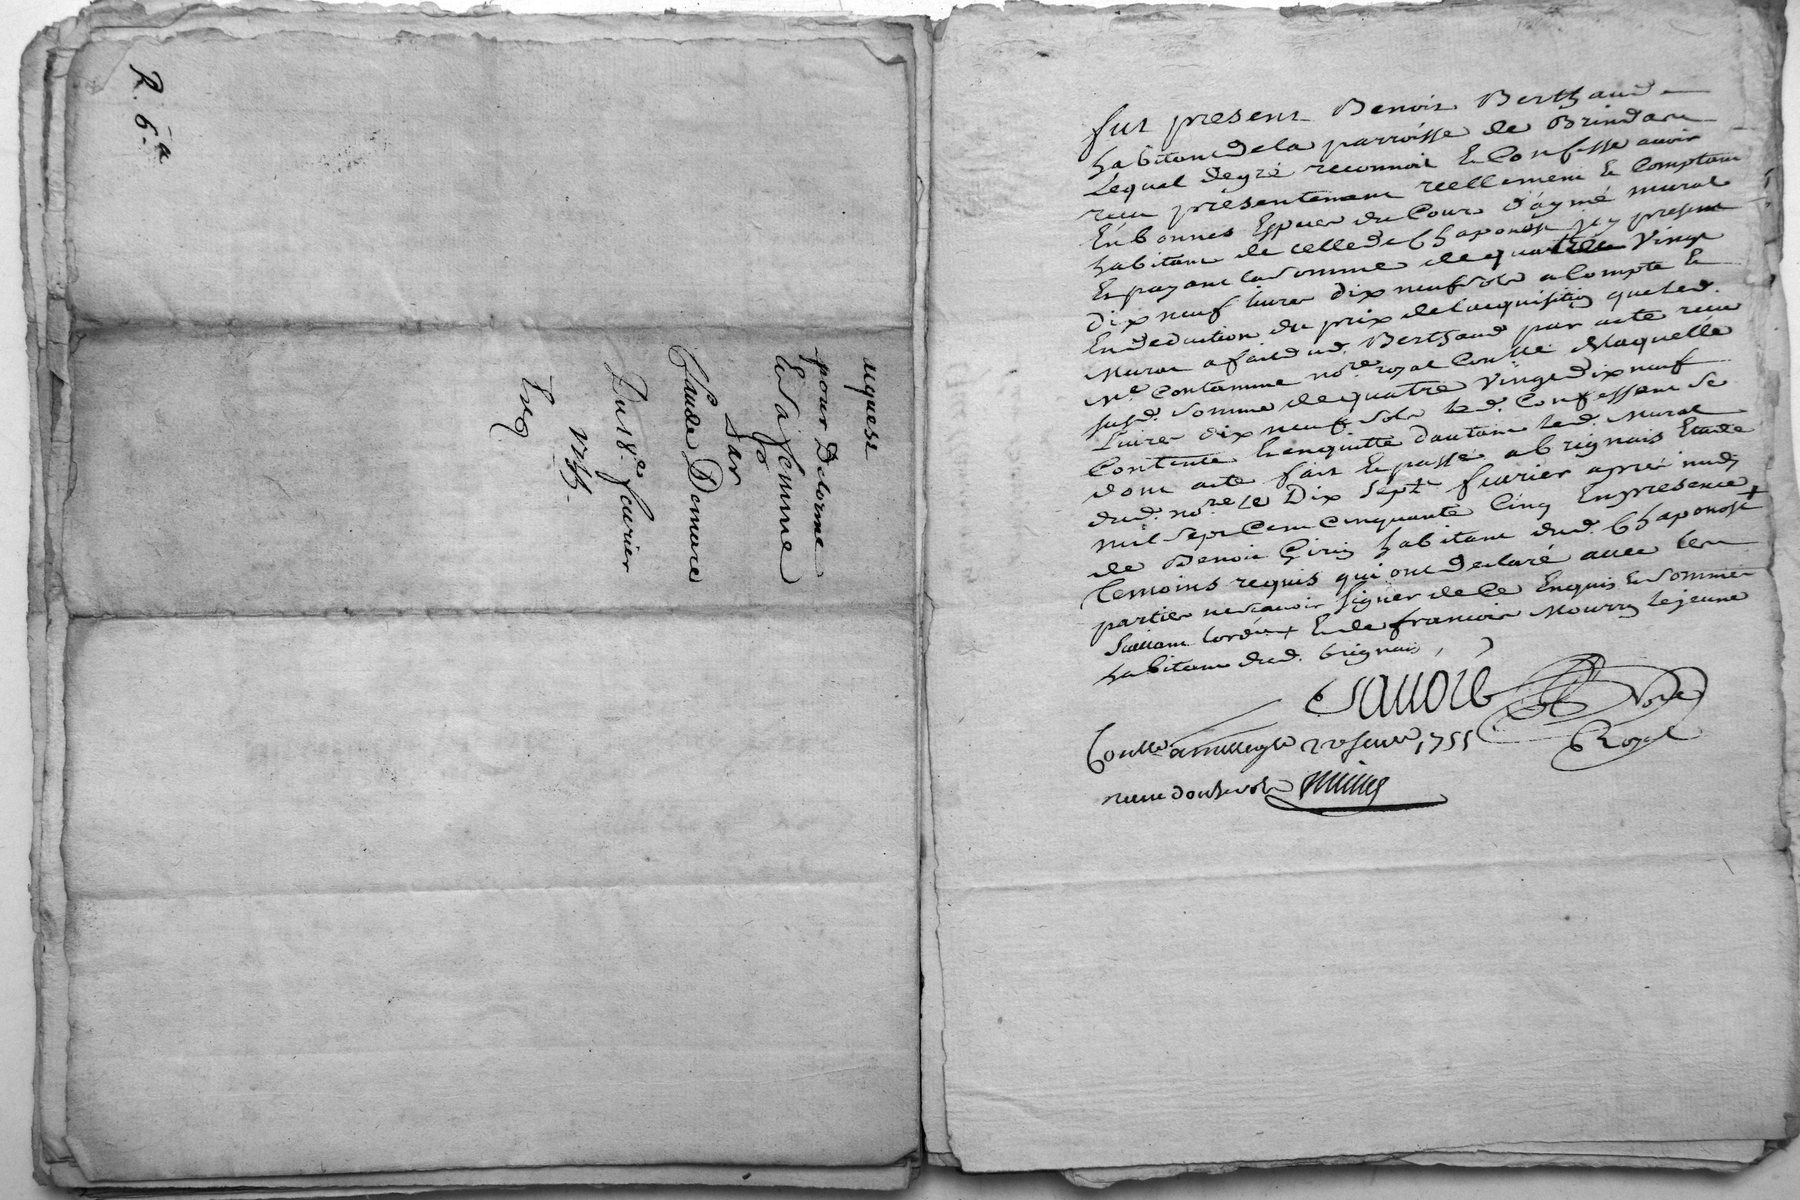 R. 6.a
aquest
pour Delorme
Et sa femme
Par
Claude Demare
Du 18e feurier
1755.
Exp
fut present Benoit Berthaud
habitant de la parroisse de Brindas
Lequel de gré reconnoit Et Confesse auoir
receu presentement reellement Et Comptant
En bonnes Especes du Cours d'aymé murat
habitant de celle de Chaponost jcy present
Et payant la somme de quatre Vingt
dix neuf liures dix neuf sols a Compte Et
En deduction du prix de l'acquisition que led.
Murat a fait dud. Berthaud par acte receu
Me. Contamine nore. royal Conllé de laquelle
susd. somme de quatre Vingt dix neuf
Liures dix neuf sols led. Confessent se
Contente Et en quitte d'autant led. Murat
dont acte fait Et passé a brignais Etude
dud. nore. Le Dix Sept feurier apres midy
mil Sept Cent Cinquante Cinq En presence
de Benoit Girin habitant dud. Chaponost
temoins requis qui ont declaré auec les
parties ne scauoir signer de ce Enquis Et sommés
suiuant l'ord. Et de francois Mourry le jeune
habitant dud. brignais
Sauoré Nore
Royal
Conllé a 22 feurier 1755
receu douze sols